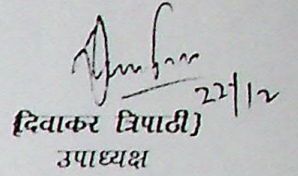 22/12
{दिवाकर त्रिपाठी}
उपाध्यक्ष